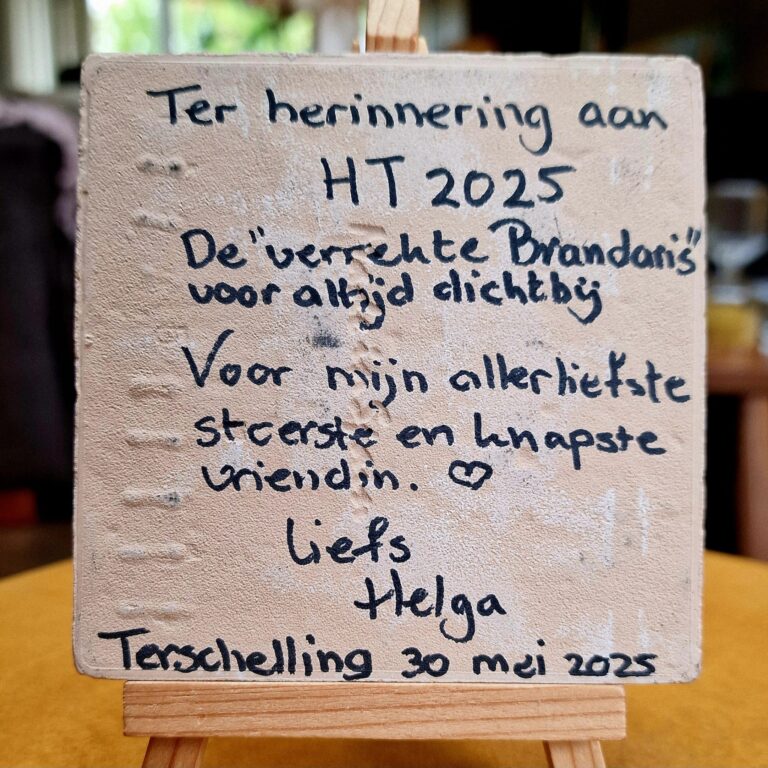 Ter herinnering aan
HT 2025
De "verrekte Brandaris"
voor altijd dichtbij
Voor mijn allerliefste
stoerste en knapste
vriendin. ♡
Liefs
Helga
Terschelling 30 mei 2025